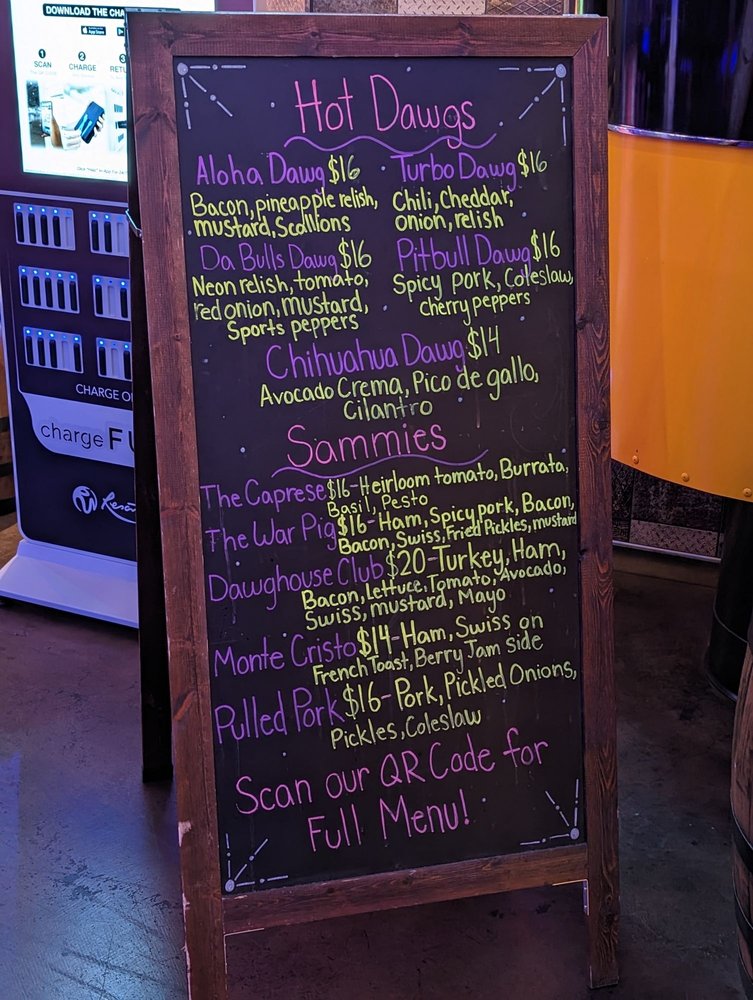 DOWNLOAD THE CHA
1 2 3
SCAN CHARGE RETU
CHARGE O
chargeFU
Hot Dawgs
Aloha Dawg $16
Bacon, pineapple relish,
mustard, Scallions
Turbo Dawg $16
Chili, Cheddar,
onion, relish
Da Bulls Dawg $16
Neon relish, tomato,
red onion, mustard,
Sports peppers
Pitbull Dawg $16
Spicy pork, Coleslaw,
cherry peppers
Chihuahua Dawg $14
Avocado Crema, Pico de gallo,
Cilantro
Sammies
The Caprese $16-Heirloom tomato, Burrata,
Basil, Pesto
The War Pig $16-Ham, Spicy pork, Bacon,
Bacon, Swiss, Fried Pickles, mustard
Dawghouse Club $20-Turkey, Ham,
Bacon, Lettuce, Tomato, Avocado,
Swiss, mustard, Mayo
Monte Cristo $14-Ham, Swiss on
French Toast, Berry Jam side
Pulled Pork $16-Pork, Pickled Onions,
Pickles, Coleslaw
Scan our QR Code for
Full Menu!